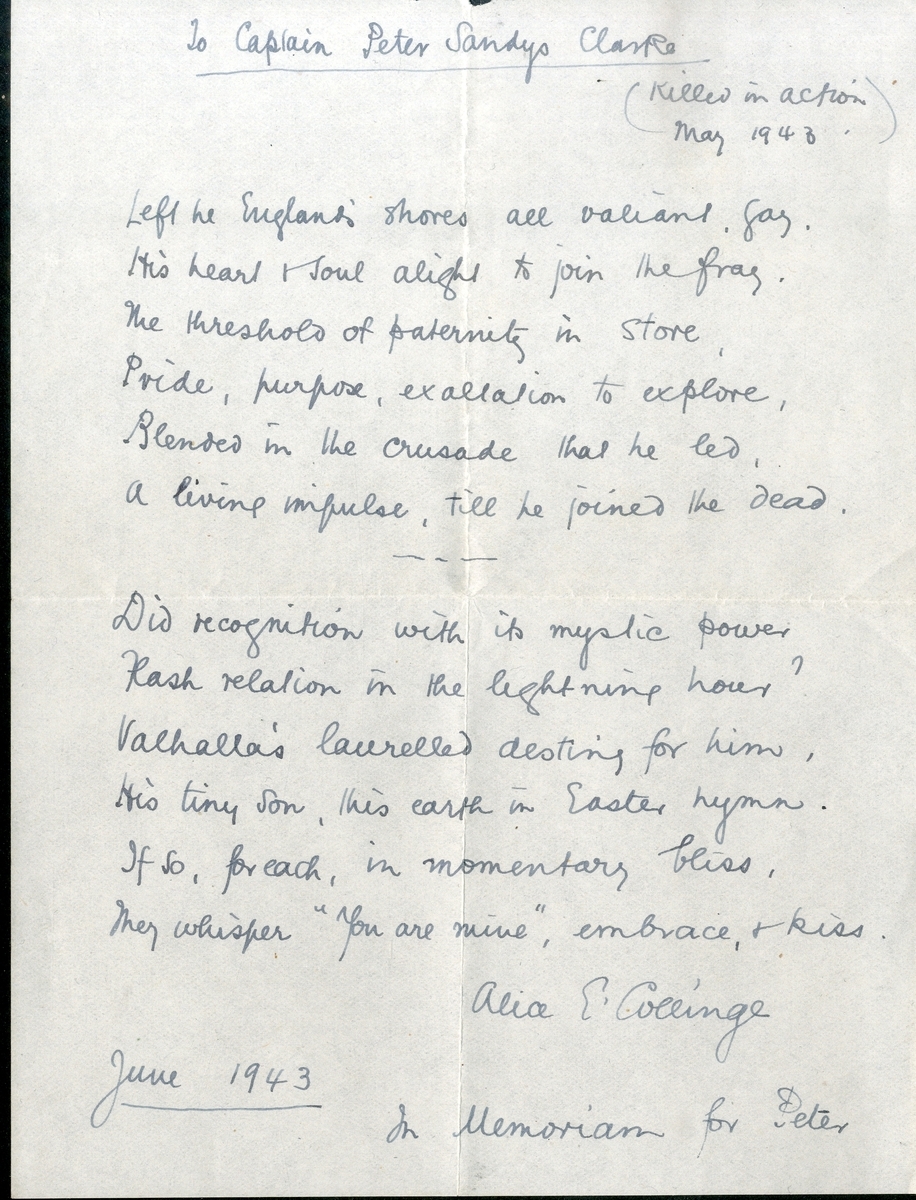 To Captain Peter Sandys Clarke
(Killed in action)
May 1943.
Left he England's shores all valiant, gay.
His heart & soul alight to join the fray.
The threshold of paternity in store,
Pride, purpose, exaltation to explore,
Blended in the crusade that he led,
A living impulse, till he joined the dead.
Did recognition with its mystic power
Flash relation in the lightning hour?
Valhalla's laurelled destiny for him,
His tiny son, this earth in Easter hymn.
If so, for each, in momentary bliss,
They whisper "You are mine", embrace, & kiss.
Alice E. Collinge
June 1943
In Memoriam for Peter